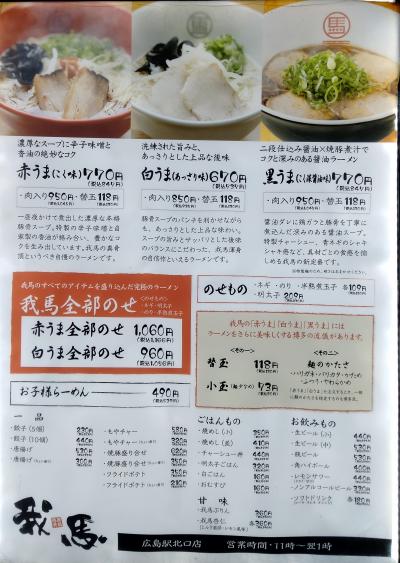 濃厚なスープに辛子味噌と
香油の絶妙なコク
赤うま(こく味)770円
・肉入り950円・替玉118円
一昼夜かけて焚出した濃厚な本格
豚骨スープ。特製の辛子味噌と自
家製の香油が絡み合い、豊かなコ
クを生み出しています。我馬の最
頂というべき自慢のラーメンです。
洗練された旨みと、
あっさりとした上品な後味
白うま(あっさり味)670円
・肉入り850円・替玉118円
豚骨スープのパンチを利かせながら
も、あっさりとした上品な味わい。
スープの旨みとサッパリとした後味
のバランスにこだわった、我馬渾身
の自信作といえるラーメンです。
馬
二段仕込み醤油×焼豚煮汁で
コクと深みのある醤油ラーメン
黒うま(こく醤油味)770円
・肉入り950円・替玉118円
醤油ダレに鶏ガラと豚骨を丁寧に
焚込んだ深みのある醤油スープ。
特製チャーシュー、青ネギのシャキ
シャキ感など、具材ごとの食感を
楽しめる我馬の新定番です。
我馬のすべてのアイテムを盛り込んだ究極のラーメン
我馬全部のせ
<のせもの>
・ネギ・明太子
・のり・半熟煮玉子
赤うま全部のせ 1,060円
(税込1,166円)
白うま全部のせ 960円
(税込1,056円)
お子様らーめん 490円
(税込539円)
のせもの
・ネギ・のり・半熟煮玉子 各109円
・明太子 209円
我馬の「赤うま」「白うま」「黒うま」には
ラーメンをさらに美味しくする博多の流儀があります。
<その一>
替玉 118円
小玉(麺少なめ) 73円
<その二>
麺のかたさ
・ハリガネ・バリカタ・かため
・ふつう・やわらか
一品
・餃子(5個) 230円
・餃子(10個) 440円
・唐揚げ 530円
・唐揚げ 300円
・もやチャー 580円
・もやチャー 320円
・焼豚盛り合せ 620円
・焼豚盛り合せ 350円
・フライドポテト 350円
・フライドポテト 210円
ごはんもの
・焼めし(小) 350円
・焼めし(並) 410円
・チャーシュー丼 440円
・明太子ごはん 320円
・白ごはん 160円
・おむすび 160円
甘味
・我馬ぷりん 260円
・我馬杏仁
各260円
お飲みもの
・生ビール(小) 440円
・生ビール(中) 530円
・瓶ビール 530円
・角ハイボール 400円
・レモンサワー 440円
・ノンアルコールビール 330円
・ソフトドリンク 各180円
我馬
広島駅北口店 営業時間・11時〜翌1時